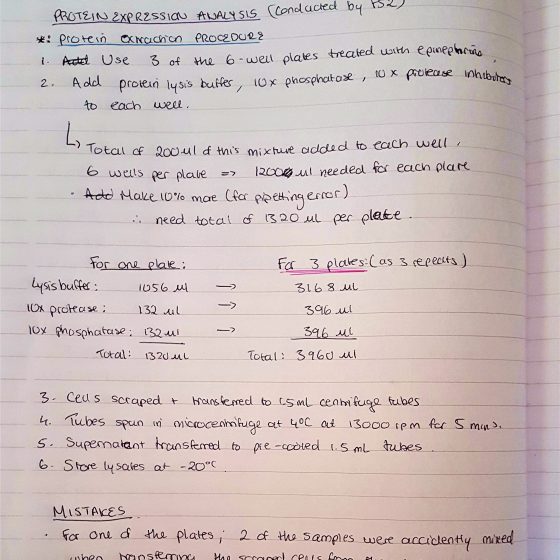 PROTEIN EXPRESSION ANALYSIS (conducted by
*: Protein Extraction PROCEDURE
1. Add Use 3 of the 6-well plates treated with epinephrine,
2. Add protein lysis buffer, 10x phosphatase, 10x protease inhibitors
to each well.
↳ Total of 200ul of this mixture added to each well.
6 wells per plate => 1200 ul needed for each plate
· Add Make 10% more (for pipetting error)
∴ need total of 1320 ul per plate.
For one plate: For 3 plates: (as 3 repeats)
Lysis buffer: 1056 ul → 3168 ul
10x protease: 132 ul → 396 ul
10x phosphatase: 132 ul → 396 ul
Total: 1320 ul Total: 3960 ul
3. Cells scraped + transferred to 1.5mL centrifuge tubes
4. Tubes spun in microcentrifuge at 4°C at 13000 rpm for 5 mins.
5. Supernatant transferred to pre-cooled 1.5 mL tubes.
6. Store lysates at -20°C.
MISTAKES
· For one of the plates; 2 of the samples were accidently mixed
when transferring the scraped cells from